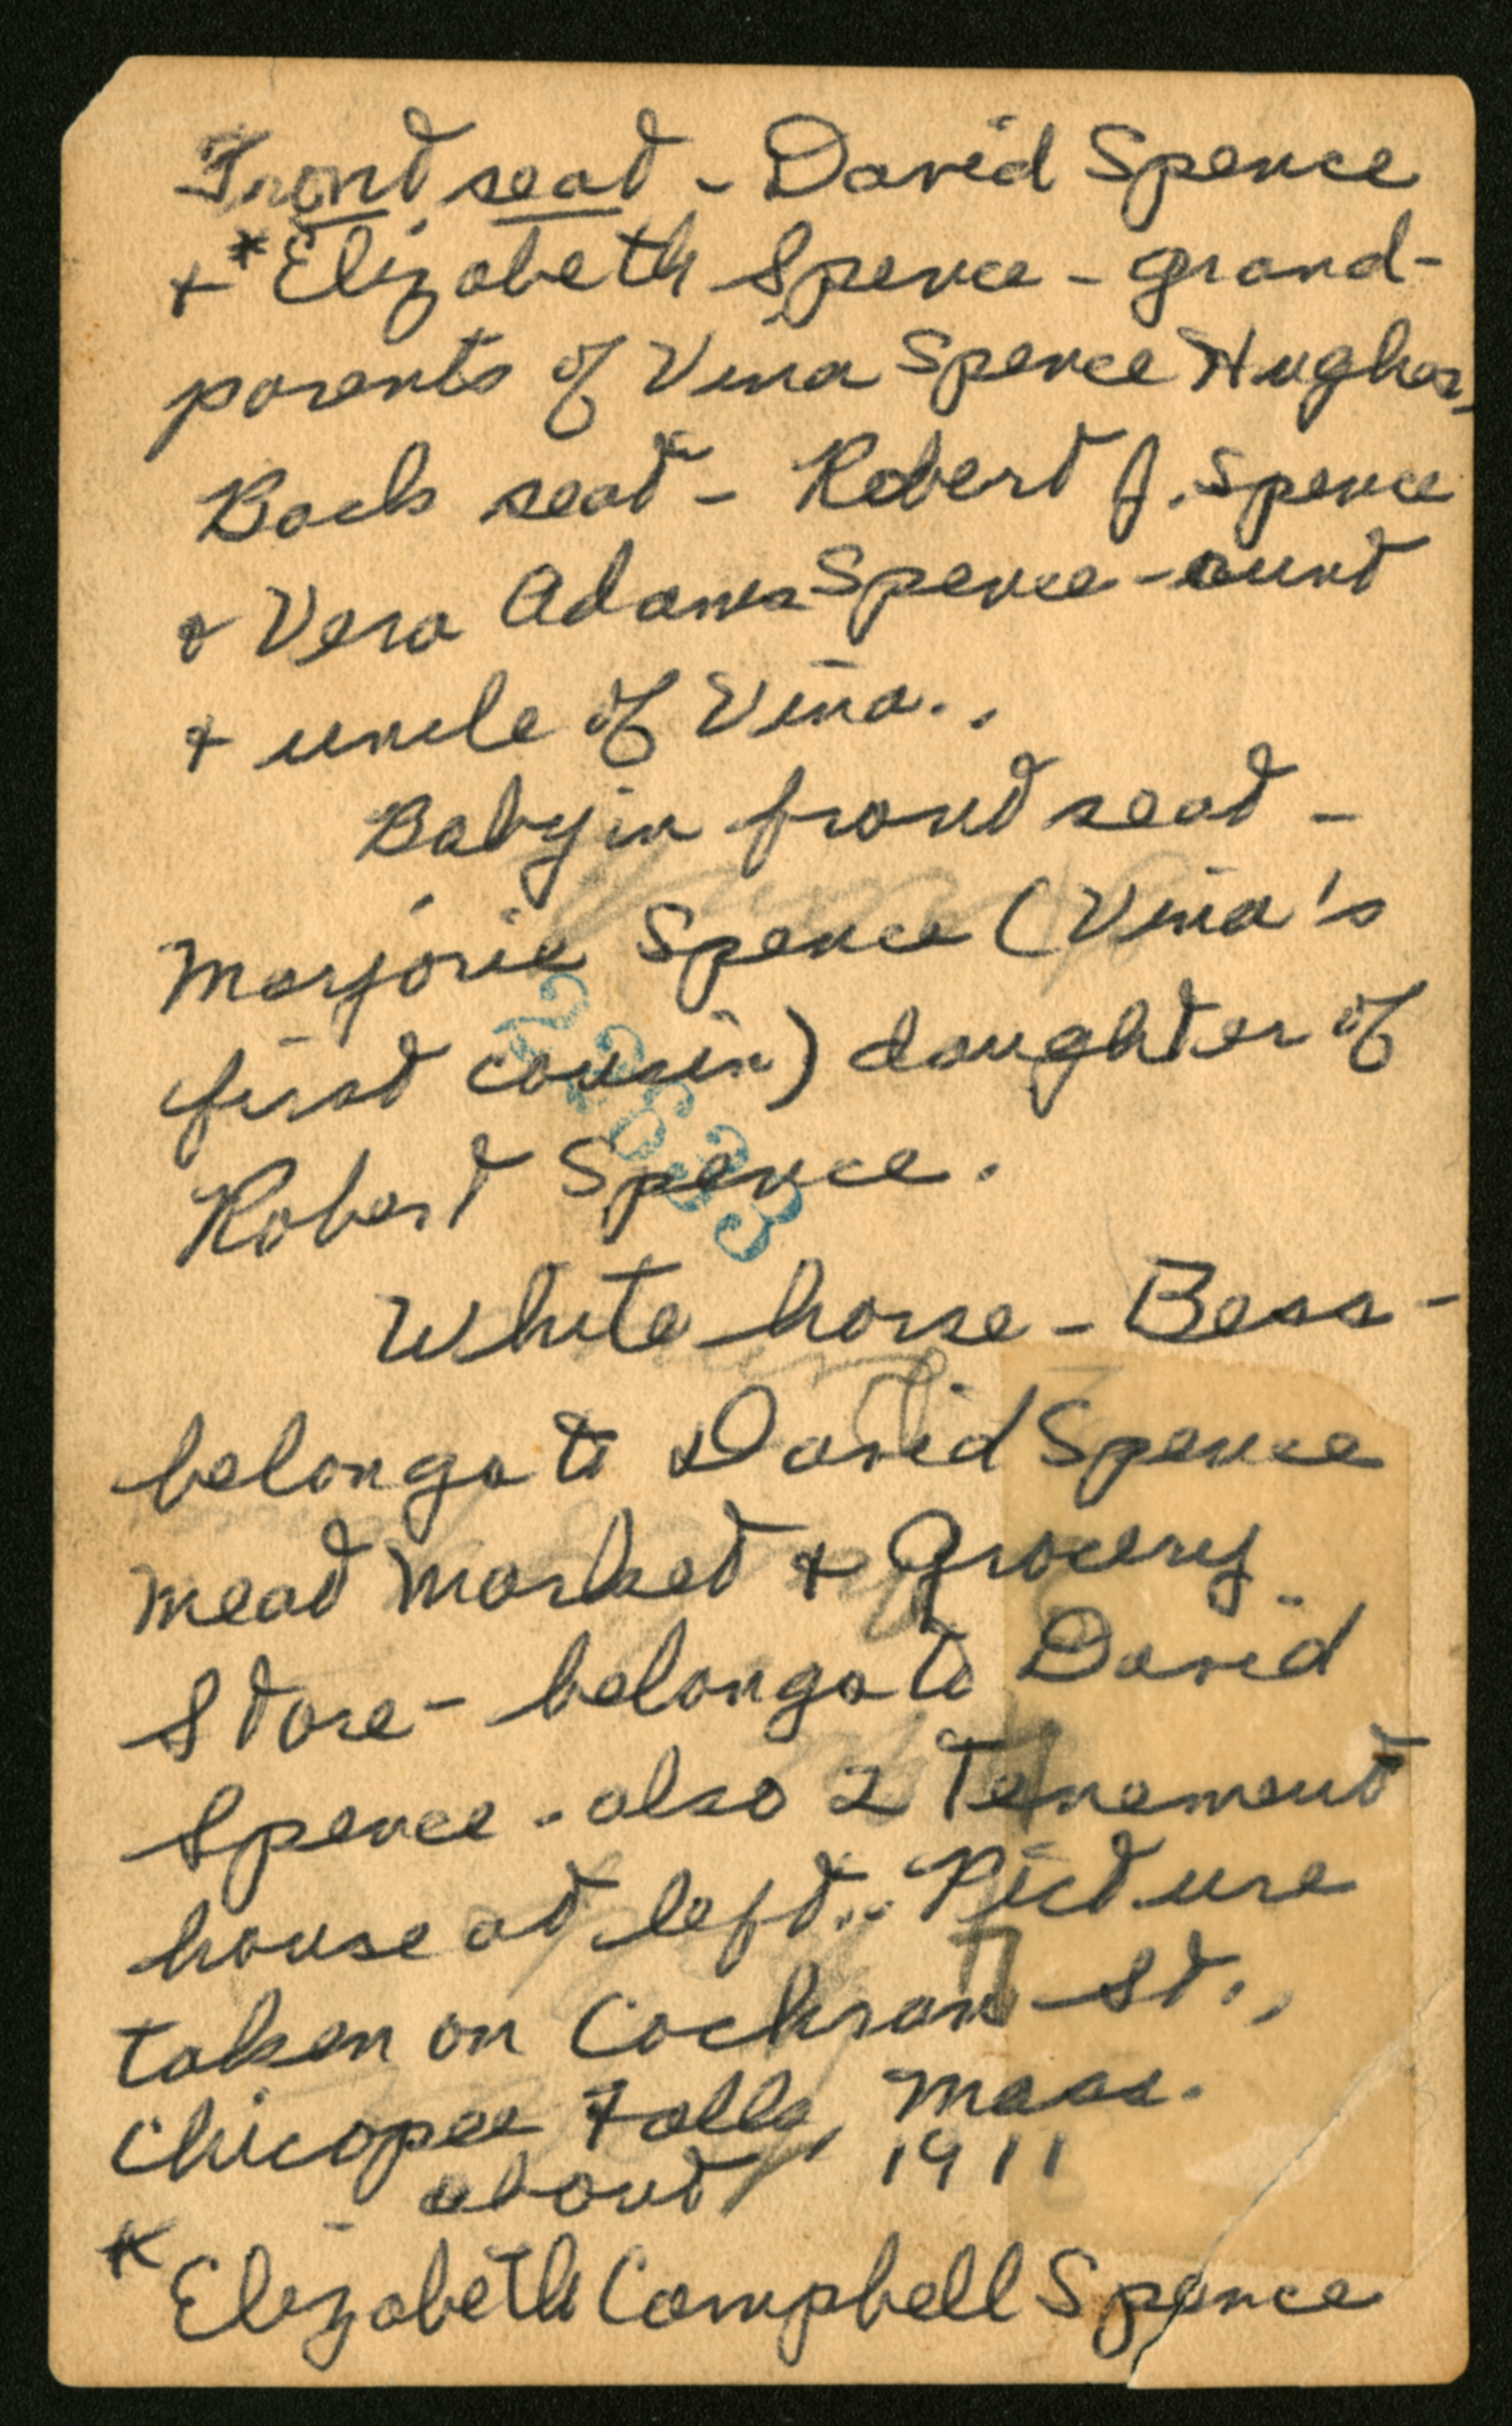 Front seat - David Spence
+ *Elizabeth Spence - grand-
parents of Vina Spence Hughes,
Back seat - Robert J. Spence
+ Vera Adams Spence - aunt
+ uncle of Vina..
Baby in front seat -
Marjorie Spence (Vina's
first cousin) daughter of
Robert Spence.
White horse - Bess -
belongs to David Spence
Meat Market + Grocery
Store - belongs to David
Spence - also 2 Tenement
house at left.. Picture
taken on Cochran St.,
Chicopee Falls, Mass.
- about 1911
* Elizabeth Campbell Spence